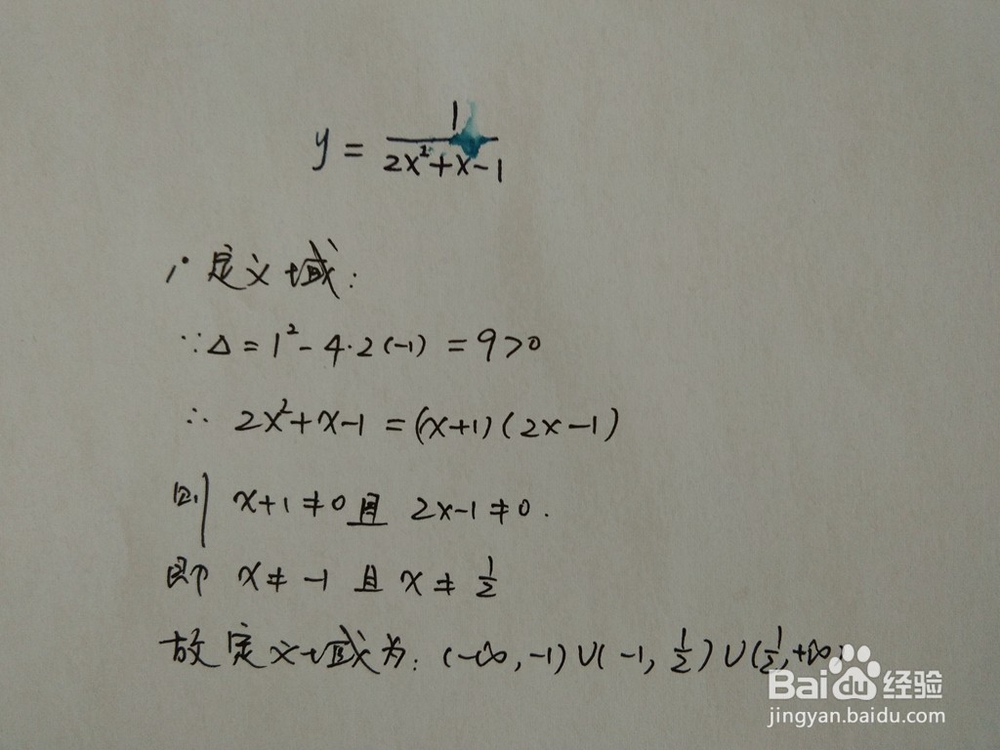 y = 1/(2x²+x-1)
1° 定义域:
∵Δ=1²-4·2(-1)=9>0
∴ 2x²+x-1=(x+1)(2x-1)
则 x+1≠0且 2x-1≠0.
即 x≠-1 且 x≠1/2
故定义域为: (-∞,-1)∪(-1,1/2)∪(1/2,+∞)
Baidu经验
jingyan.baidu.com